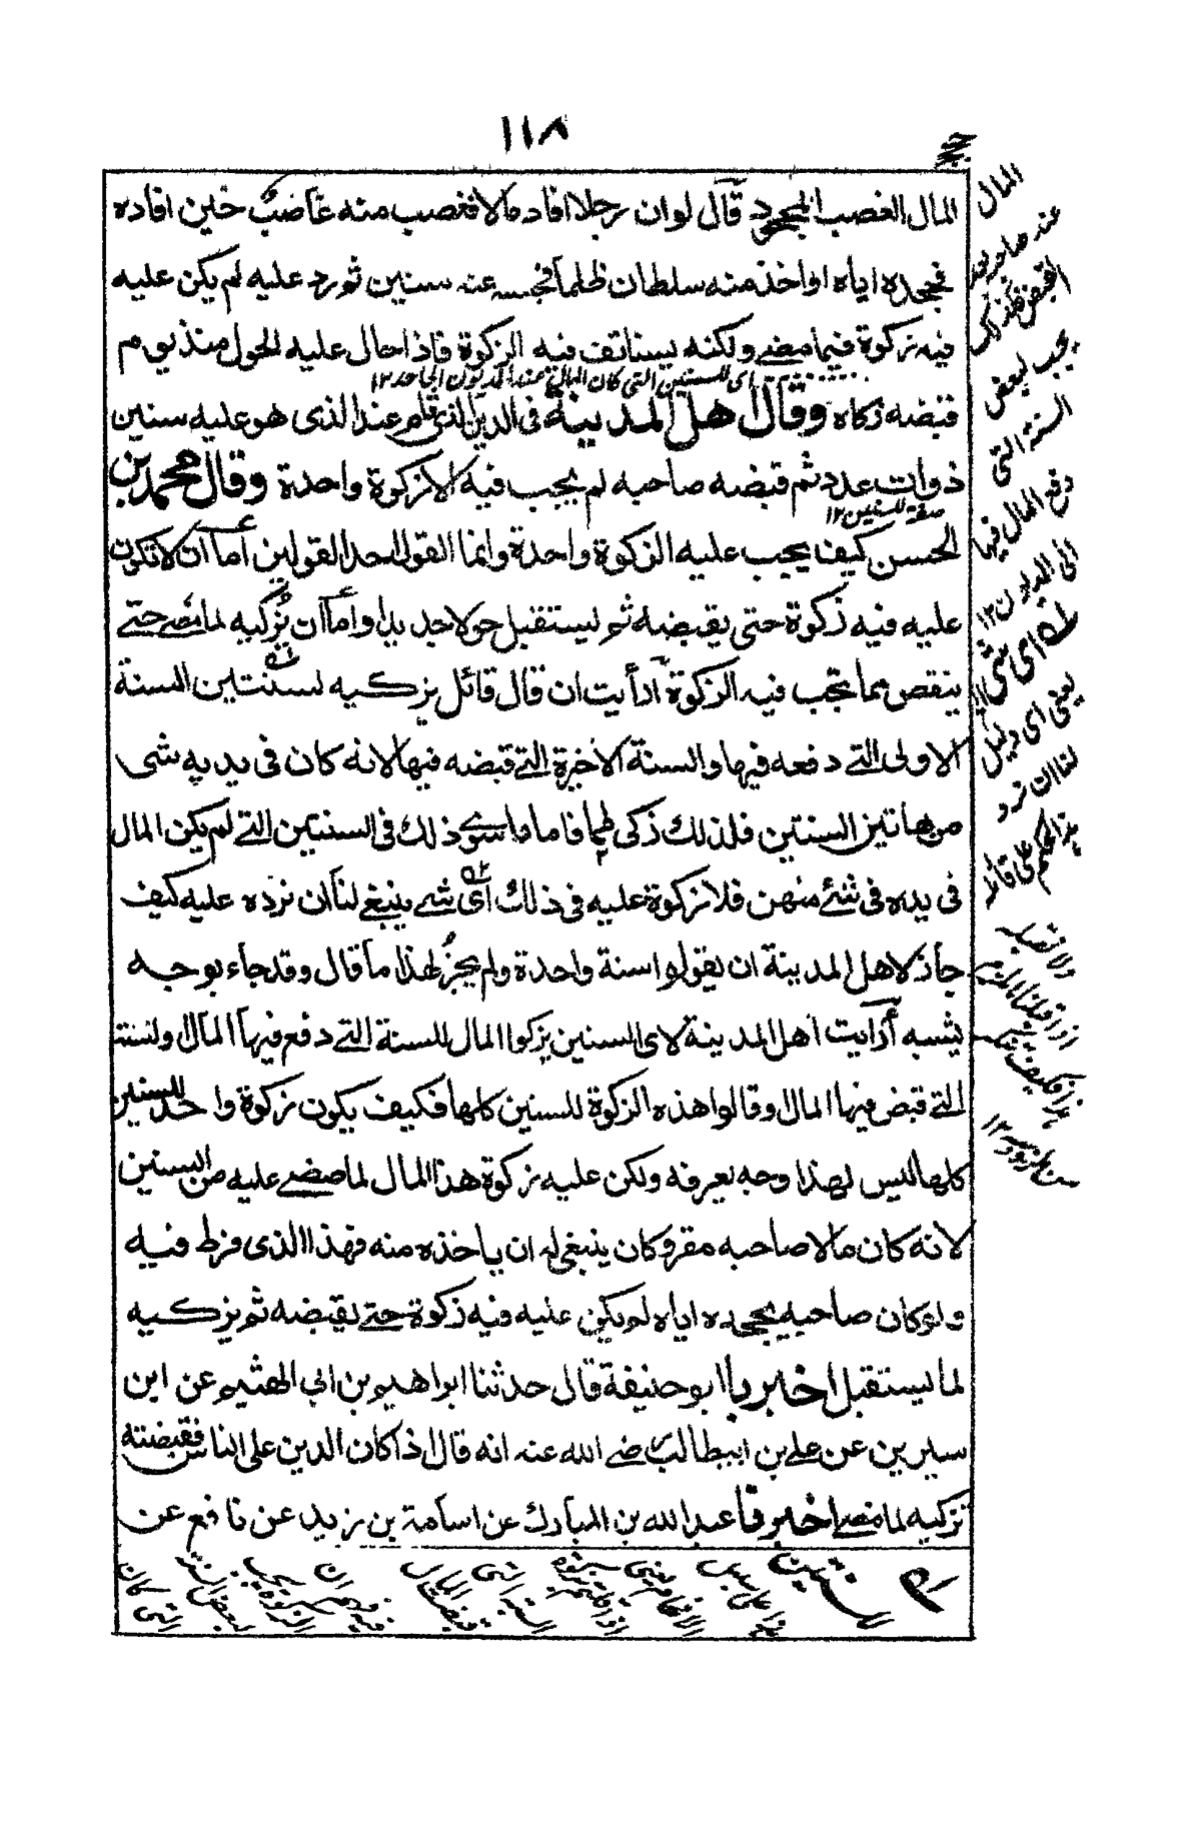 ١١٨
المال الغصب المجحود قال لو ان رجلا افاد مالا فغصب منه غاصب حين افاده
فجحده اياه او اخذ منه سلطان ظلما فحبسه عنه سنين ثم رد عليه لم يكن عليه
فيه زكوة فيما مضى ولكنه يستانف فيه الزكوة فاذا حال عليه الحول منذ يوم
اى للسنين التى كان المال عند المديون الجاحد ١٢
قبضه زكاه وقال اهل المدينة فى الدين الذى قام عند الذى هو عليه سنين
ذوات عدد ثم قبضه صاحبه لم يجب فيه الا زكوة واحدة وقال محمد بن
صفة للسنين ١٢
الحسن كيف يجب عليه الزكوة واحدة وانما القول احد القولين أما أن لا تكون
عليه فيه زكوة حتى يقبضه ثم يستقبل حولا جديدا وأما أن نزكيه لما مضى حتى
ينقص مما تجب فيه الزكوة أرأيت ان قال قائل يزكيه لسنتين السنة
الاولى التى دفعه فيها والسنة الأخيرة التى قبضه فيها لانه كان فى يديه شى
من هاتين السنتين فلذلك زكى لهما فاما ما سوى ذلك فى السنين التى لم يكن المال
فى يده فى شئ منهن فلا زكوة عليه فى ذلك أى شى ينبغى لنا أن نرده عليه كيف
جاز لاهل المدينة ان يقولوا سنة واحدة ولم يجز لهذا ما قال وقد جاء بوجه
يشبه أرأيت اهل المدينة لاى السنين يزكوا المال للسنة التى دفع فيها المال او لسنة
التى قبض فيها المال وقالوا هذه الزكوة للسنين كلها فكيف يكون زكوة واحد للسنين
كلها ليس لهذا وجه نعرفه ولكن عليه زكوة هذا المال لما مضى عليه من السنين
لانه كان مالا صاحبه مقر وكان ينبغى له ان ياخذه منه فهذا الذى فرط فيه
ولو كان صاحبه يجحده اياه لم يكن عليه فيه زكوة حتى يقبضه ثم يزكيه
لما يستقبل اخبرنا ابو حنيفة قال حدثنا ابراهيم بن ابى الهثيم عن ابن
سيرين عن على بن ابيطالب رضى الله عنه انه قال اذا كان الدين على الناس فقبضته
تزكيه لما مضى اخبرنا عبد الله بن المبارك عن اسامة بن زيد عن نافع عن
المال
عند صاحبه بعد
القبض فكذلك
يجب لبعض
السنة التى
دفع المال فيها
الى المديون ١٢
يعنى اى دليل
لنا ان نرد
هذا الحكم على قائله
ولا نقبله